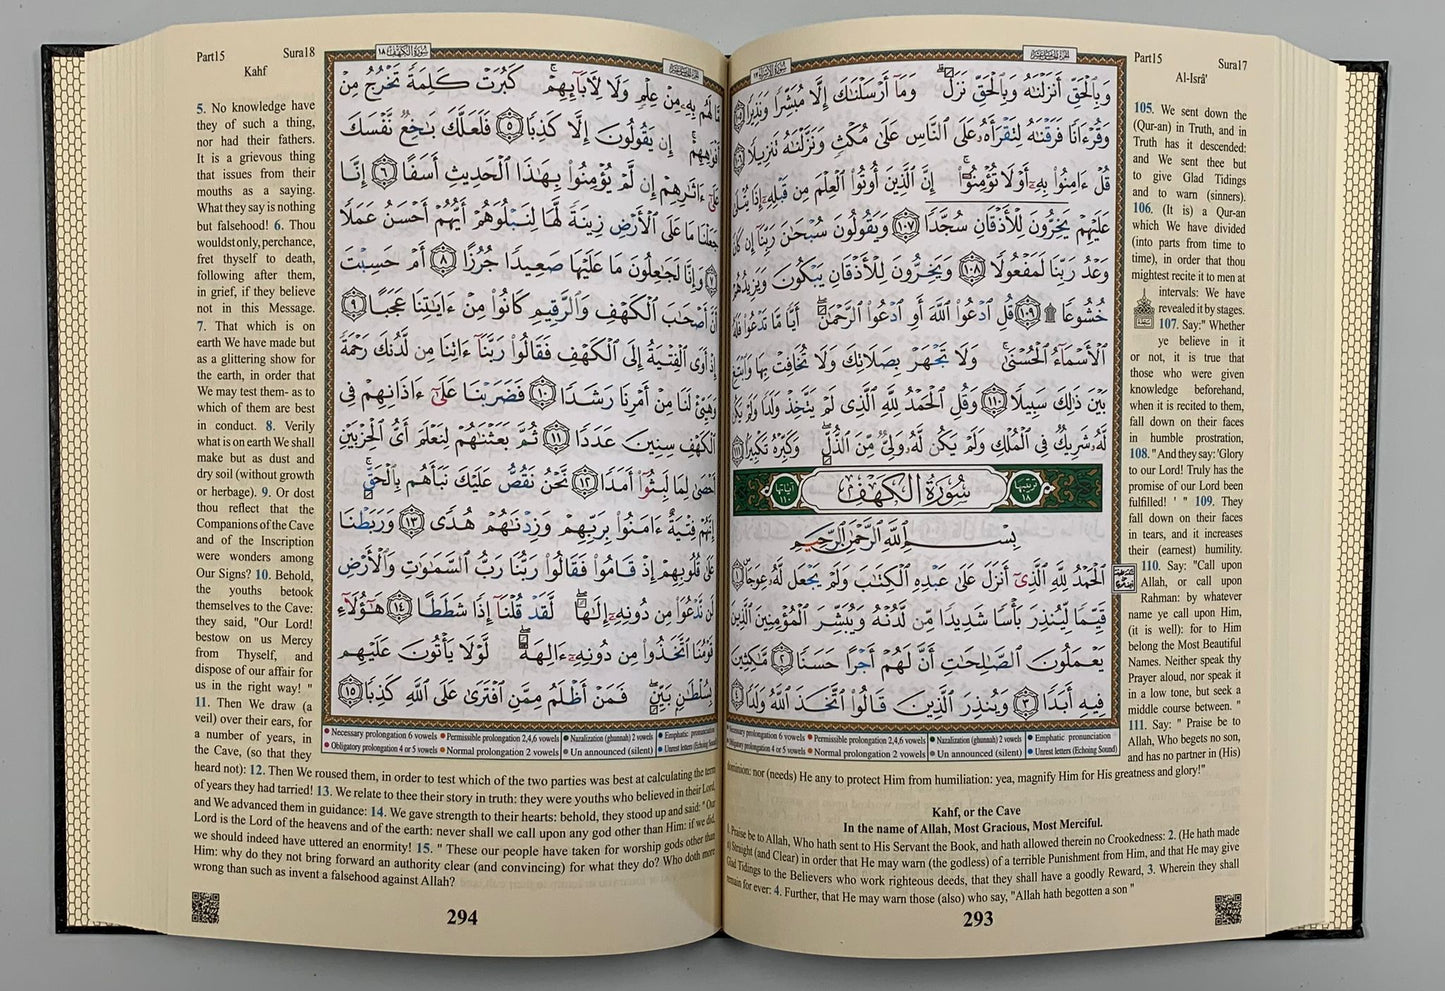 سُورَةُ الإِسْرَاءِ ١٧
الجزء الخامس عشر
Part15 Sura17
Al-Isrâ'
وَبِالْحَقِّ أَنزَلْنَاهُ وَبِالْحَقِّ نَزَلَ ۗ وَمَا أَرْسَلْنَاكَ إِلَّا مُبَشِّرًا وَنَذِيرًا ١٠٥
وَقُرْءَانًا فَرَقْنَاهُ لِتَقْرَأَهُ عَلَى النَّاسِ عَلَىٰ مُكْثٍ وَنَزَّلْنَاهُ تَنزِيلًا ١٠٦
قُلْ ءَامِنُوا بِهِ أَوْ لَا تُؤْمِنُوا ۚ إِنَّ الَّذِينَ أُوتُوا الْعِلْمَ مِن قَبْلِهِ إِذَا يُتْلَىٰ
عَلَيْهِمْ يَخِرُّونَ لِلْأَذْقَانِ سُجَّدًا ١٠٧ وَيَقُولُونَ سُبْحَانَ رَبِّنَا إِن كَانَ
وَعْدُ رَبِّنَا لَمَفْعُولًا ١٠٨ وَيَخِرُّونَ لِلْأَذْقَانِ يَبْكُونَ وَيَزِيدُهُمْ
خُشُوعًا ۩ ١٠٩ قُلِ ادْعُوا اللَّهَ أَوِ ادْعُوا الرَّحْمَٰنَ ۖ أَيًّا مَّا تَدْعُوا فَلَهُ
الْأَسْمَاءُ الْحُسْنَىٰ ۚ وَلَا تَجْهَرْ بِصَلَاتِكَ وَلَا تُخَافِتْ بِهَا وَابْتَغِ
بَيْنَ ذَٰلِكَ سَبِيلًا ١١٠ وَقُلِ الْحَمْدُ لِلَّهِ الَّذِي لَمْ يَتَّخِذْ وَلَدًا وَلَمْ يَكُن
لَّهُ شَرِيكٌ فِي الْمُلْكِ وَلَمْ يَكُن لَّهُ وَلِيٌّ مِّنَ الذُّلِّ ۖ وَكَبِّرْهُ تَكْبِيرًا ١١١
ترتيبها ١٨ سُورَةُ الْكَهْفِ آياتها ١١٠
بِسْمِ اللَّهِ الرَّحْمَٰنِ الرَّحِيمِ
الْحَمْدُ لِلَّهِ الَّذِي أَنزَلَ عَلَىٰ عَبْدِهِ الْكِتَابَ وَلَمْ يَجْعَل لَّهُ عِوَجًا ١
قَيِّمًا لِّيُنذِرَ بَأْسًا شَدِيدًا مِّن لَّدُنْهُ وَيُبَشِّرَ الْمُؤْمِنِينَ الَّذِينَ
يَعْمَلُونَ الصَّالِحَاتِ أَنَّ لَهُمْ أَجْرًا حَسَنًا ٢ مَّاكِثِينَ
فِيهِ أَبَدًا ٣ وَيُنذِرَ الَّذِينَ قَالُوا اتَّخَذَ اللَّهُ وَلَدًا ٤
Necessary prolongation 6 vowels • Permissible prolongation 2,4,6 vowels • Nazalization (ghunnah) 2 vowels • Emphatic pronunciation
Obligatory prolongation 4 or 5 vowels • Normal prolongation 2 vowels • Un announced (silent) • Unrest letters (Echoing Sound)
105. We sent down the
(Qur-an) in Truth, and in
Truth has it descended:
and We sent thee but
to give Glad Tidings
and to warn (sinners).
106. (It is) a Qur-an
which We have divided
(into parts from time to
time), in order that thou
mightest recite it to men at
intervals: We have
revealed it by stages.
107. Say:" Whether
ye believe in it
or not, it is true that
those who were given
knowledge beforehand,
when it is recited to them,
fall down on their faces
in humble prostration,
108. "And they say: 'Glory
to our Lord! Truly has the
promise of our Lord been
fulfilled! ' " 109. They
fall down on their faces
in tears, and it increases
their (earnest) humility.
110. Say: "Call upon
Allah, or call upon
Rahman: by whatever
name ye call upon Him,
(it is well): for to Him
belong the Most Beautiful
Names. Neither speak thy
Prayer aloud, nor speak it
in a low tone, but seek a
middle course between. "
111. Say: " Praise be to
Allah, Who begets no son,
and has no partner in (His)
dominion: nor (needs) He any to protect Him from humiliation: yea, magnify Him for His greatness and glory!"
Kahf, or the Cave
In the name of Allah, Most Gracious, Most Merciful.
1. Praise be to Allah, Who hath sent to His Servant the Book, and hath allowed therein no Crookedness: 2. (He hath made
it) Straight (and Clear) in order that He may warn (the godless) of a terrible Punishment from Him, and that He may give
Glad Tidings to the Believers who work righteous deeds, that they shall have a goodly Reward, 3. Wherein they shall
remain for ever: 4. Further, that He may warn those (also) who say, "Allah hath begotten a son "
293
Part15 Sura18
Kahf
سُورَةُ الْكَهْفِ ١٨
الجزء الخامس عشر
مَّا لَهُم بِهِ مِنْ عِلْمٍ وَلَا لِآبَائِهِمْ ۚ كَبُرَتْ كَلِمَةً تَخْرُجُ مِنْ
أَفْوَاهِهِمْ ۚ إِن يَقُولُونَ إِلَّا كَذِبًا ٥ فَلَعَلَّكَ بَاخِعٌ نَّفْسَكَ
عَلَىٰ ءَاثَارِهِمْ إِن لَّمْ يُؤْمِنُوا بِهَٰذَا الْحَدِيثِ أَسَفًا ٦ إِنَّا
جَعَلْنَا مَا عَلَى الْأَرْضِ زِينَةً لَّهَا لِنَبْلُوَهُمْ أَيُّهُمْ أَحْسَنُ عَمَلًا
٧ وَإِنَّا لَجَاعِلُونَ مَا عَلَيْهَا صَعِيدًا جُرُزًا ٨ أَمْ حَسِبْتَ
أَنَّ أَصْحَابَ الْكَهْفِ وَالرَّقِيمِ كَانُوا مِنْ ءَايَاتِنَا عَجَبًا ٩
إِذْ أَوَى الْفِتْيَةُ إِلَى الْكَهْفِ فَقَالُوا رَبَّنَا ءَاتِنَا مِن لَّدُنكَ رَحْمَةً
وَهَيِّئْ لَنَا مِنْ أَمْرِنَا رَشَدًا ١٠ فَضَرَبْنَا عَلَىٰ ءَاذَانِهِمْ فِي
الْكَهْفِ سِنِينَ عَدَدًا ١١ ثُمَّ بَعَثْنَاهُمْ لِنَعْلَمَ أَيُّ الْحِزْبَيْنِ
أَحْصَىٰ لِمَا لَبِثُوا أَمَدًا ١٢ نَّحْنُ نَقُصُّ عَلَيْكَ نَبَأَهُم بِالْحَقِّ ۚ
إِنَّهُمْ فِتْيَةٌ ءَامَنُوا بِرَبِّهِمْ وَزِدْنَاهُمْ هُدًى ١٣ وَرَبَطْنَا
عَلَىٰ قُلُوبِهِمْ إِذْ قَامُوا فَقَالُوا رَبُّنَا رَبُّ السَّمَاوَاتِ وَالْأَرْضِ
لَن نَّدْعُوَا مِن دُونِهِ إِلَٰهًا ۖ لَّقَدْ قُلْنَا إِذًا شَطَطًا ١٤ هَٰؤُلَاءِ
قَوْمُنَا اتَّخَذُوا مِن دُونِهِ ءَالِهَةً ۖ لَّوْلَا يَأْتُونَ عَلَيْهِم
بِسُلْطَانٍ بَيِّنٍ ۖ فَمَنْ أَظْلَمُ مِمَّنِ افْتَرَىٰ عَلَى اللَّهِ كَذِبًا ١٥
• Necessary prolongation 6 vowels • Permissible prolongation 2,4,6 vowels • Nazalization (ghunnah) 2 vowels • Emphatic pronunciation
• Obligatory prolongation 4 or 5 vowels • Normal prolongation 2 vowels • Un announced (silent) • Unrest letters (Echoing Sound)
5. No knowledge have
they of such a thing,
nor had their fathers.
It is a grievous thing
that issues from their
mouths as a saying.
What they say is nothing
but falsehood! 6. Thou
wouldst only, perchance,
fret thyself to death,
following after them,
in grief, if they believe
not in this Message.
7. That which is on
earth We have made but
as a glittering show for
the earth, in order that
We may test them- as to
which of them are best
in conduct. 8. Verily
what is on earth We shall
make but as dust and
dry soil (without growth
or herbage). 9. Or dost
thou reflect that the
Companions of the Cave
and of the Inscription
were wonders among
Our Signs? 10. Behold,
the youths betook
themselves to the Cave:
they said, "Our Lord!
bestow on us Mercy
from Thyself, and
dispose of our affair for
us in the right way! "
11. Then We draw (a
veil) over their ears, for
a number of years, in
the Cave, (so that they
heard not): 12. Then We roused them, in order to test which of the two parties was best at calculating the term
of years they had tarried! 13. We relate to thee their story in truth: they were youths who believed in their Lord,
and We advanced them in guidance: 14. We gave strength to their hearts: behold, they stood up and said: "Our
Lord is the Lord of the heavens and of the earth: never shall we call upon any god other than Him: if we did,
we should indeed have uttered an enormity! 15. " These our people have taken for worship gods other than
Him: why do they not bring forward an authority clear (and convincing) for what they do? Who doth more
wrong than such as invent a falsehood against Allah?
294